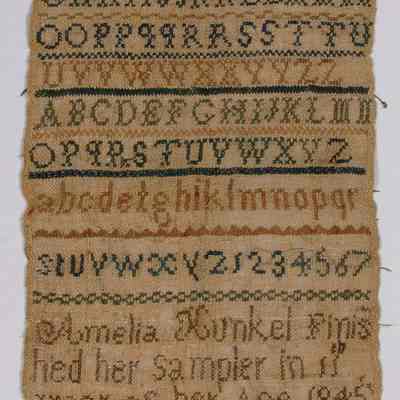 OOPPqqRRSSTTU
UVVWWXXYYZZ
ABCDEFGHIJKLMN
OPqRSTUVWXYZ
abcdefghiklmnopqr
stuvwxyz1234567
Amelia Kunkel Finis
hed her Sampler in 11th
year of her Age 1845